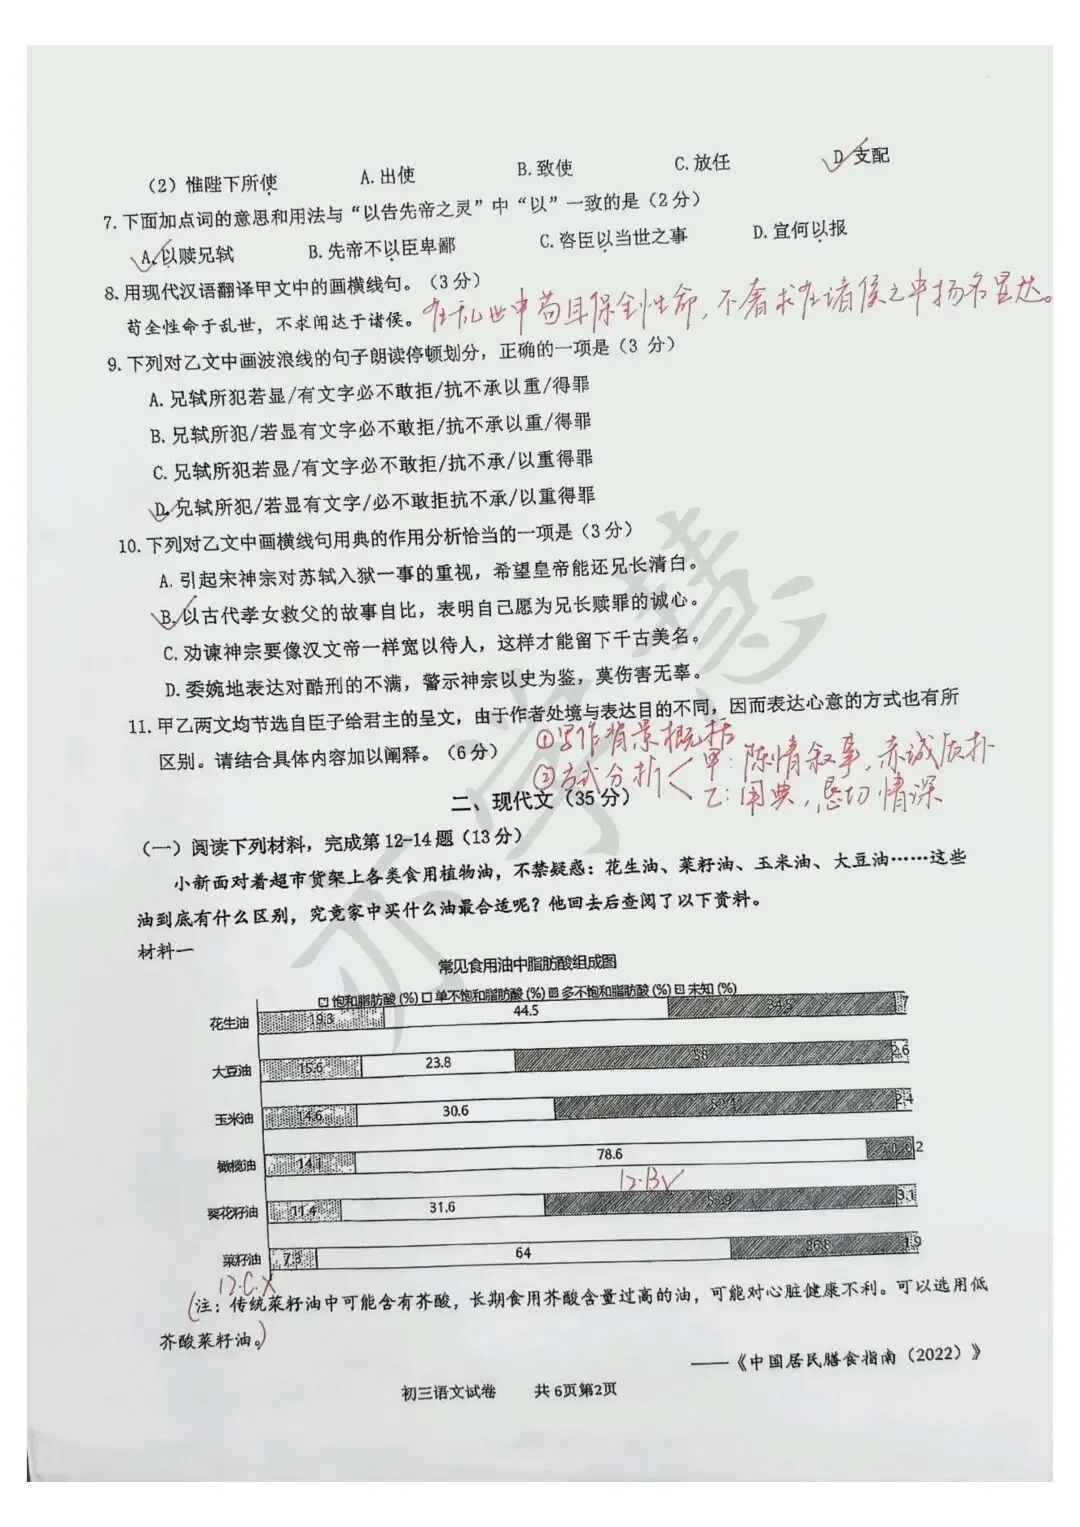 （2）惟陛下所使 A.出使 B.致使 C.放任 D 支配
7.下面加点词的意思和用法与“以告先帝之灵”中“以”一致的是（2分）
A.以赎兄轼 B.先帝不以臣卑鄙 C.咨臣以当世之事 D.宜何以报
8.用现代汉语翻译甲文中的画横线句。（3分）
苟全性命于乱世，不求闻达于诸侯。在乱世中苟且保全性命，不奢求在诸侯之中扬名显达。
9.下列对乙文中画波浪线的句子朗读停顿划分，正确的一项是（3 分）
A.兄轼所犯若显/有文字必不敢拒/抗不承以重/得罪
B.兄轼所犯/若显有文字必不敢拒/抗不承以重/得罪
C.兄轼所犯若显/有文字必不敢拒/抗不承/以重得罪
D.兄轼所犯/若显有文字/必不敢拒抗不承/以重得罪
10.下列对乙文中画横线句用典的作用分析恰当的一项是（3分）
A.引起宋神宗对苏轼入狱一事的重视，希望皇帝能还兄长清白。
B.以古代孝女救父的故事自比，表明自己愿为兄长赎罪的诚心。
C.劝谏神宗要像汉文帝一样宽以待人，这样才能留下千古美名。
D.委婉地表达对酷刑的不满，警示神宗以史为鉴，莫伤害无辜。
11.甲乙两文均节选自臣子给君主的呈文，由于作者处境与表达目的不同，因而表达心意的方式也有所
区别。请结合具体内容加以阐释。（6分）
①写作背景概括
②方式分析 甲：陈情叙事，赤诚质朴
乙：用典，恳切情深
二、现代文（35分）
（一）阅读下列材料，完成第12-14题（13分）
小新面对着超市货架上各类食用植物油，不禁疑惑：花生油、菜籽油、玉米油、大豆油……这些
油到底有什么区别，究竟家中买什么油最合适呢？他回去后查阅了以下资料。
材料一
常见食用油中脂肪酸组成图
饱和脂肪酸(%) 单不饱和脂肪酸(%) 多不饱和脂肪酸(%) 未知(%)
花生油 19.3 44.5 34.5 1.7
大豆油 15.6 23.8 58 2.6
玉米油 14.6 30.6 2.4
橄榄油 14.1 78.6
12.B√
葵花籽油 11.4 31.6 53.9 3.1
菜籽油 7.3 64 26.8 1.9
12.C.X
（注：传统菜籽油中可能含有芥酸，长期食用芥酸含量过高的油，可能对心脏健康不利。可以选用低
芥酸菜籽油。）
——《中国居民膳食指南（2022）》
初三语文试卷 共6页第2页